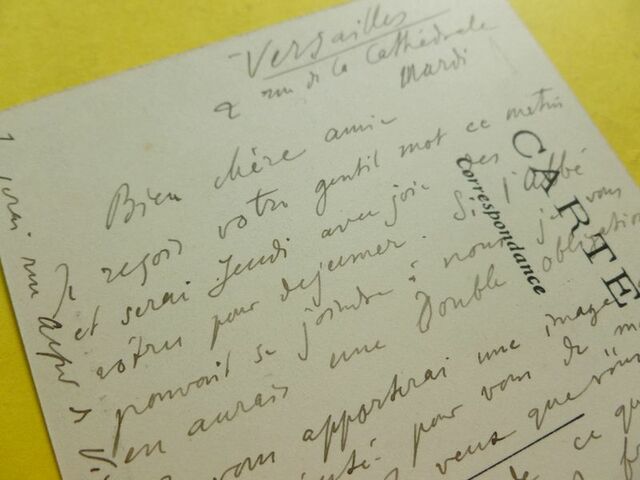 Versailles
2 rue de la Cathédrale
Mardi
Bien chère amie
Je reçois votre gentil mot ce matin
et serai Jeudi avec joie des
vôtres pour dejeuner. Si l'Abbé
pouvait se joindre à nous je vous
en aurais une Double obligation
vous apporterai une image
pour vous de
veux que vous
de ce qu
CARTE
Correspondance